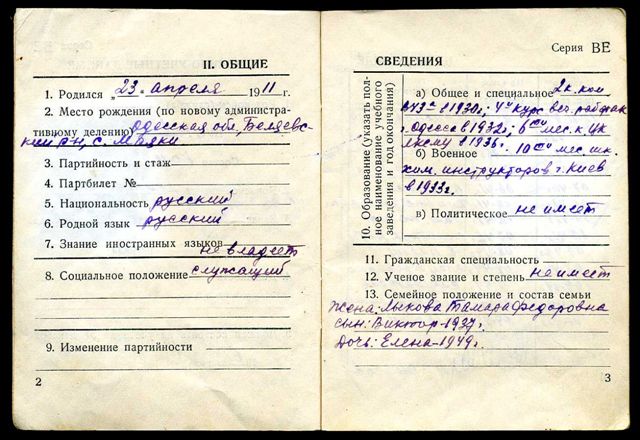 II. ОБЩИЕ
1. Родился „23 апреля 1911 г.
2. Место рождения (по новому административному
тивному делению) Одесская обл, Беляевс-
кий р-н, с. Маяки
3. Партийность и стаж
4. Партбилет №
5. Национальность русский
6. Родной язык русский
7. Знание иностранных языков не владеет
8. Социальное положение служащий
9. Изменение партийности
2
Серия ВЕ
СВЕДЕНИЯ
10. Образование (указать пол-
ное наименование учебного
заведения и год окончания)
а) Общее и специальное 2 к.
в 1930г; 4й курс веч. рабфак
г. Одесса в 1932г; 6ти мес. к.
в 1936г.
б) Военное 10ти мес. шк.
хим. инструкторов г. Киев
в 1933г.
в) Политическое не имеет
11. Гражданская специальность
12. Ученое звание и степень не имеет
13. Семейное положение и состав семьи
Жена: Лыкова Тамара Федоровна
сын: Виктор-1937г.
дочь: Елена-1949г.
3